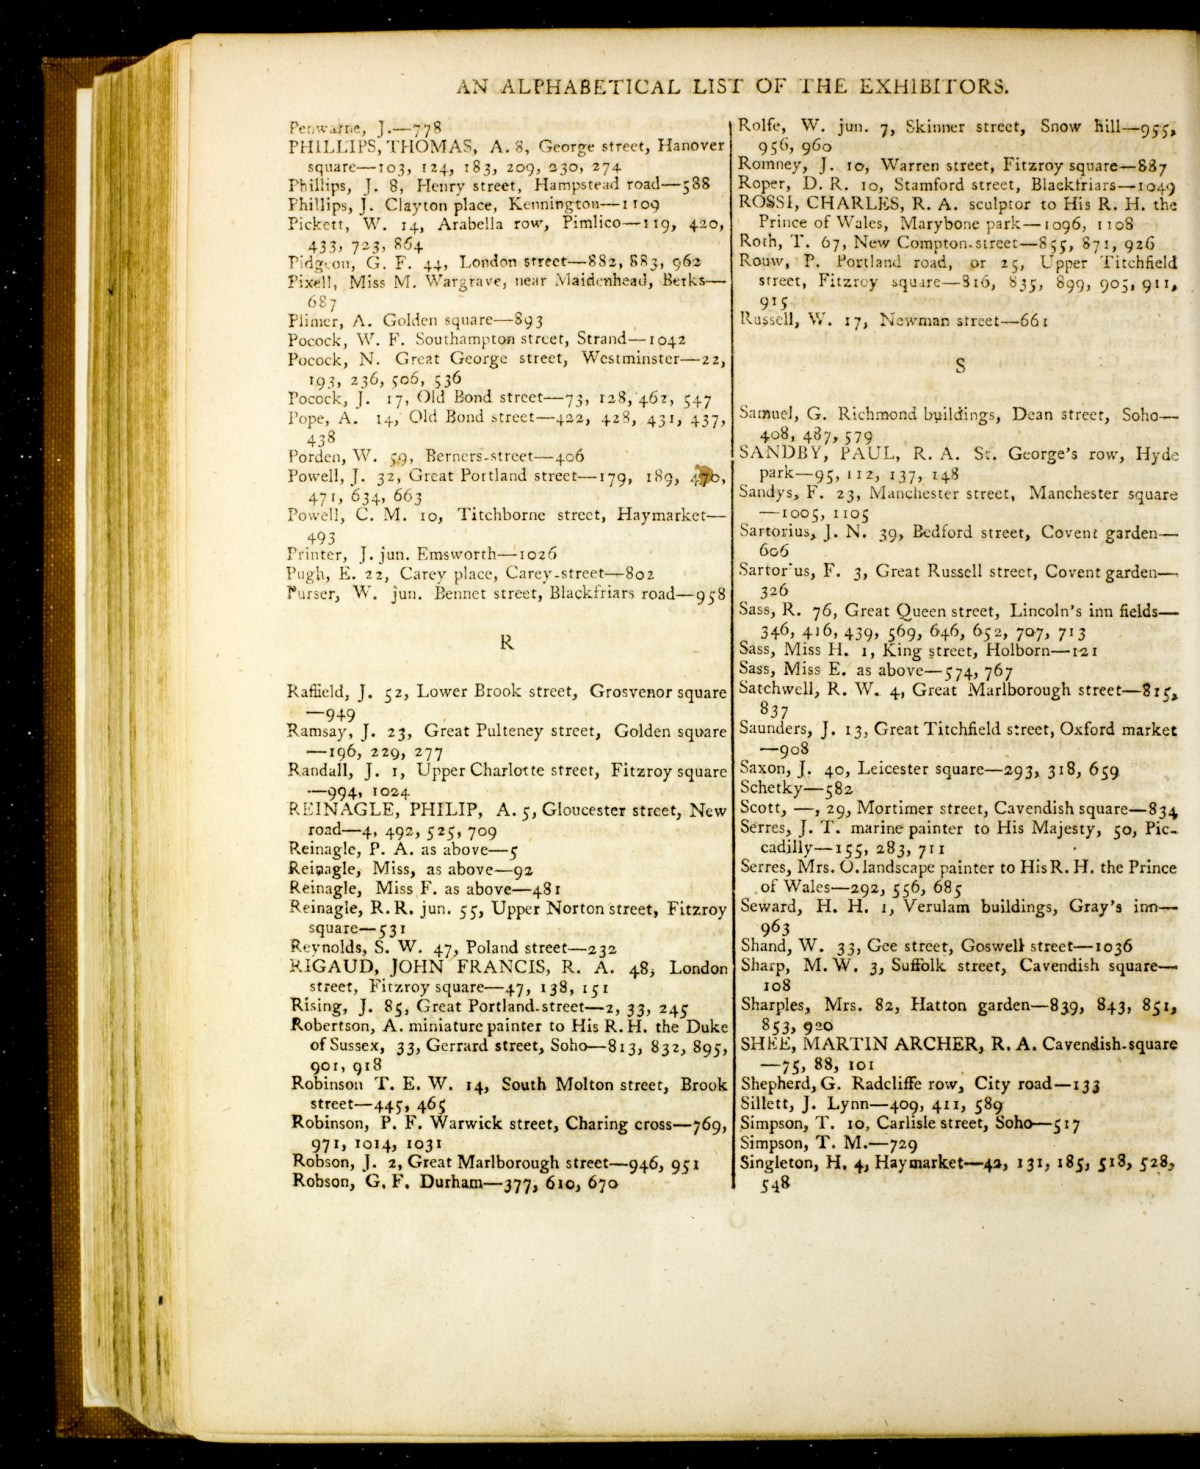 AN ALPHABETICAL LIST OF THE EXHIBITORS.
Penwarne, J.—778
PHILLIPS, THOMAS, A. 8, George street, Hanover
square—103, 124, 183, 209, 230, 274
Phillips, J. 8, Henry street, Hampstead road—588
Phillips, J. Clayton place, Kennington—1109
Pickett, W. 14, Arabella row, Pimlico—119, 420,
433, 723, 864
Pidgeon, G. F. 44, London street—882, 883, 962
Pixell, Miss M. Wargrave, near Maidenhead, Berks—
687
Plimer, A. Golden square—893
Pocock, W. F. Southampton street, Strand—1042
Pocock, N. Great George street, Westminster—22,
193, 236, 506, 536
Pocock, J. 17, Old Bond street—73, 128, 462, 547
Pope, A. 14, Old Bond street—422, 428, 431, 437,
438
Porden, W. 59, Berners-street—406
Powell, J. 32, Great Portland street—179, 189, 470,
471, 634, 663
Powell, C. M. 10, Titchborne street, Haymarket—
493
Printer, J. jun. Emsworth—1026
Pugh, E. 22, Carey place, Carey-street—802
Purser, W. jun. Bennet street, Blackfriars road—958
R
Raffield, J. 52, Lower Brook street, Grosvenor square
—949
Ramsay, J. 23, Great Pulteney street, Golden square
—196, 229, 277
Randall, J. 1, Upper Charlotte street, Fitzroy square
—994, 1024
REINAGLE, PHILIP, A. 5, Gloucester street, New
road—4, 492, 525, 709
Reinagle, P. A. as above—5
Reinagle, Miss, as above—92
Reinagle, Miss F. as above—481
Reinagle, R. R. jun. 55, Upper Norton street, Fitzroy
square—531
Reynolds, S. W. 47, Poland street—232
RIGAUD, JOHN FRANCIS, R. A. 48, London
street, Fitzroy square—47, 138, 151
Rising, J. 85, Great Portland-street—2, 33, 245
Robertson, A. miniature painter to His R. H. the Duke
of Sussex, 33, Gerrard street, Soho—813, 832, 895,
901, 918
Robinson T. E. W. 14, South Molton street, Brook
street—445, 465
Robinson, P. F. Warwick street, Charing cross—769,
971, 1014, 1031
Robson, J. 2, Great Marlborough street—946, 951
Robson, G. F. Durham—377, 610, 670
Rolfe, W. jun. 7, Skinner street, Snow hill—955,
956, 960
Romney, J. 10, Warren street, Fitzroy square—887
Roper, D. R. 10, Stamford street, Blackfriars—1049
ROSSI, CHARLES, R. A. sculptor to His R. H. the
Prince of Wales, Marybone park—1096, 1108
Roth, T. 67, New Compton-street—855, 871, 926
Rouw, P. Portland road, or 25, Upper Titchfield
street, Fitzroy square—816, 835, 899, 905, 911,
915
Russell, W. 17, Newman street—661
S
Samuel, G. Richmond buildings, Dean street, Soho—
408, 487, 579
SANDBY, PAUL, R. A. St. George's row, Hyde
park—95, 112, 137, 148
Sandys, F. 23, Manchester street, Manchester square
—1005, 1105
Sartorius, J. N. 39, Bedford street, Covent garden—
606
Sartor'us, F. 3, Great Russell street, Covent garden—
326
Sass, R. 76, Great Queen street, Lincoln's inn fields—
346, 416, 439, 569, 646, 652, 707, 713
Sass, Miss H. 1, King street, Holborn—121
Sass, Miss E. as above—574, 767
Satchwell, R. W. 4, Great Marlborough street—815,
837
Saunders, J. 13, Great Titchfield street, Oxford market
—908
Saxon, J. 40, Leicester square—293, 318, 659
Schetky—582
Scott, —, 29, Mortimer street, Cavendish square—834
Serres, J. T. marine painter to His Majesty, 50, Pic-
cadilly—155, 283, 711
Serres, Mrs. O. landscape painter to His R. H. the Prince
of Wales—292, 556, 685
Seward, H. H. 1, Verulam buildings, Gray's inn—
963
Shand, W. 33, Gee street, Goswell street—1036
Sharp, M. W. 3, Suffolk street, Cavendish square—
108
Sharples, Mrs. 82, Hatton garden—839, 843, 851,
853, 920
SHEE, MARTIN ARCHER, R. A. Cavendish-square
—75, 88, 101
Shepherd, G. Radcliffe row, City road—133
Sillett, J. Lynn—409, 411, 589
Simpson, T. 10, Carlisle street, Soho—517
Simpson, T. M.—729
Singleton, H. 4, Haymarket—42, 131, 185, 518, 528,
548